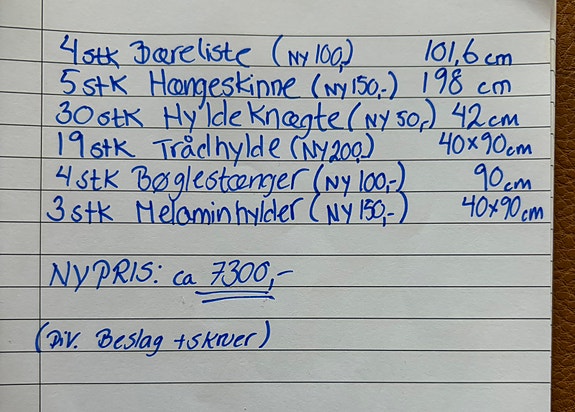 4 stk Bæreliste (NY 100,) 101,6 cm
5 stk Hængeskinne (NY 150,-) 198 cm
30 stk Hylde Knægte (NY 50,-) 42 cm
19 stk Trådhylde (NY 200,) 40x90 cm
4 stk Bøglestænger (NY 100,-) 90 cm
3 stk Melaminhylder (NY 150,-) 40x90 cm
NYPRIS: ca 7300,-
(Div. Beslag + skruer)